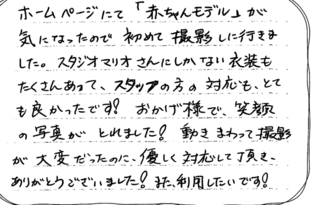 ホームページにて「赤ちゃんモデル」が
気になったので初めて撮影しに行きま
した。スタジオマリオさんにしかない衣装も
たくさんあって、スタッフの方の対応も、とて
も良かったです! おかげ様で、笑顔
の写真がとれました! 動きまわって撮影
が大変だったのに、優しく対応して頂き、
ありがとうございました! また、利用したいです!